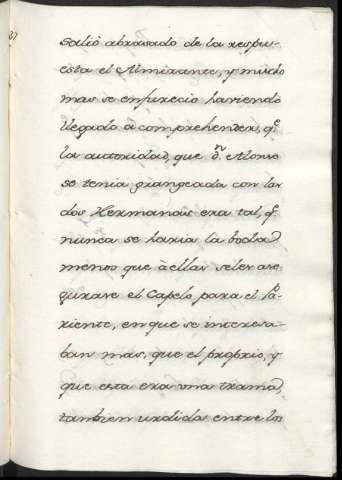 37
salió abrasado de la respu-
esta el Almirante, y mucho
mas se enfurecio haviendo
llegado à comprehender, q.e
la autoridad, que d.n Alonso
se tenia grangeada con las
dos Hermanas era tal, q.e
nunca se haria la boda
menos que à ellas seles ase-
gurase el Capelo para el Pa-
riente, en que se interesa-
ban mas, que el proprio, y
que esta era una trama,
tambien urdida entre los